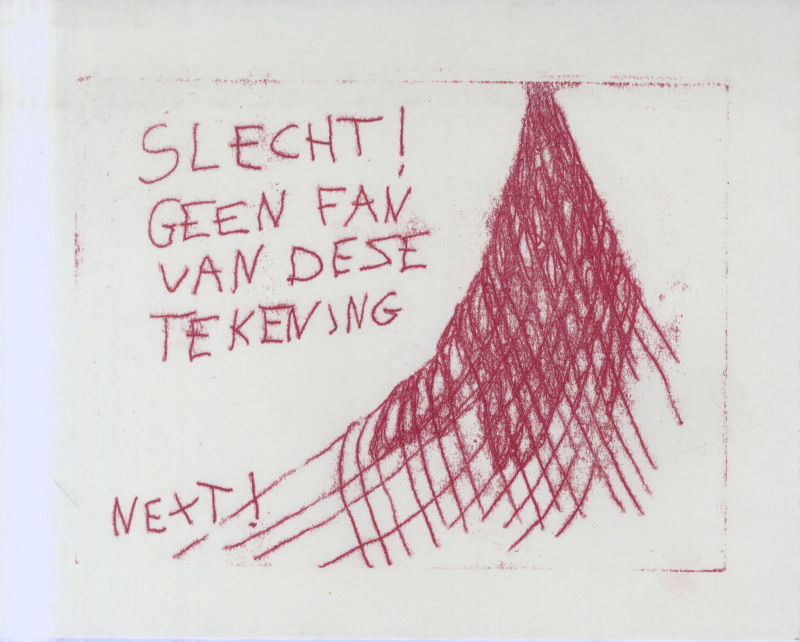 SLECHT!
GEEN FAN
VAN DESE
TEKENING
NEXT!